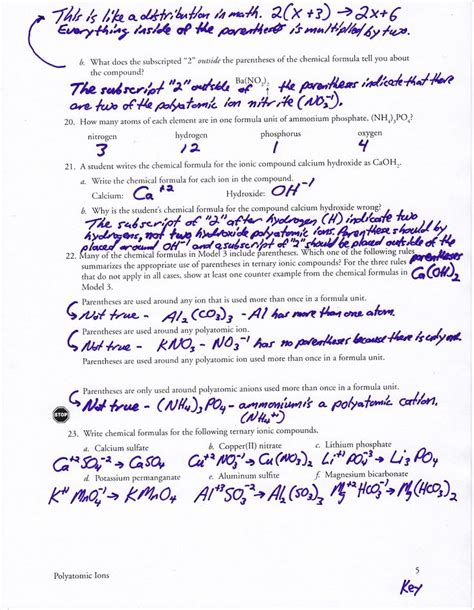 This is like a distribution in math. 2(x+3) → 2x+6
Everything inside of the parenthesis is multiplied by two.
b. What does the subscripted "2" outside the parentheses of the chemical formula tell you about
the compound? Ba(NO₂)₂
The subscript "2" outside of the parentheses indicate that there
are two of the polyatomic ion nitrite (NO₂⁻¹).
20. How many atoms of each element are in one formula unit of ammonium phosphate, (NH₄)₃PO₄?
nitrogen hydrogen phosphorus oxygen
3 12 1 4
21. A student writes the chemical formula for the ionic compound calcium hydroxide as CaOH₂.
a. Write the chemical formula for each ion in the compound.
Calcium: Ca⁺² Hydroxide: OH⁻¹
b. Why is the student's chemical formula for the compound calcium hydroxide wrong?
The subscript of "2" after hydrogen (H) indicate two
hydrogens, not two hydroxide polyatomic ions. Parenthese should by
placed around OH⁻¹ and a subscript of "2" should be placed outside of the
parentheses
22. Many of the chemical formulas in Model 3 include parentheses. Which one of the following rules
summarizes the appropriate use of parentheses in ternary ionic compounds? For the three rules
that do not apply in all cases, show at least one counter example from the chemical formulas in
Model 3. Ca(OH)₂
Parentheses are used around any ion that is used more than once in a formula unit.
Not true - Al₂(CO₃)₃ - Al has more than one atom.
Parentheses are used around any polyatomic ion.
Not true - KNO₃ - NO₃⁻¹ has no parentheses because there is only one.
Parentheses are used around any polyatomic ion used more than once in a formula unit.
Parentheses are only used around polyatomic anions used more than once in a formula unit.
Not true - (NH₄)₃PO₄ - ammonium is a polyatomic cation.
(NH₄⁺¹)
STOP
23. Write chemical formulas for the following ternary ionic compounds.
a. Calcium sulfate b. Copper(II) nitrate c. Lithium phosphate
Ca⁺² SO₄⁻² → CaSO₄ Cu⁺² NO₃⁻¹ → Cu(NO₃)₂ Li⁺¹ PO₄⁻³ → Li₃PO₄
d. Potassium permanganate e. Aluminum sulfite f. Magnesium bicarbonate
K⁺¹ MnO₄⁻¹ → KMnO₄ Al⁺³ SO₃⁻² → Al₂(SO₃)₃ Mg⁺² HCO₃⁻¹ → Mg(HCO₃)₂
Polyatomic Ions 5
Key